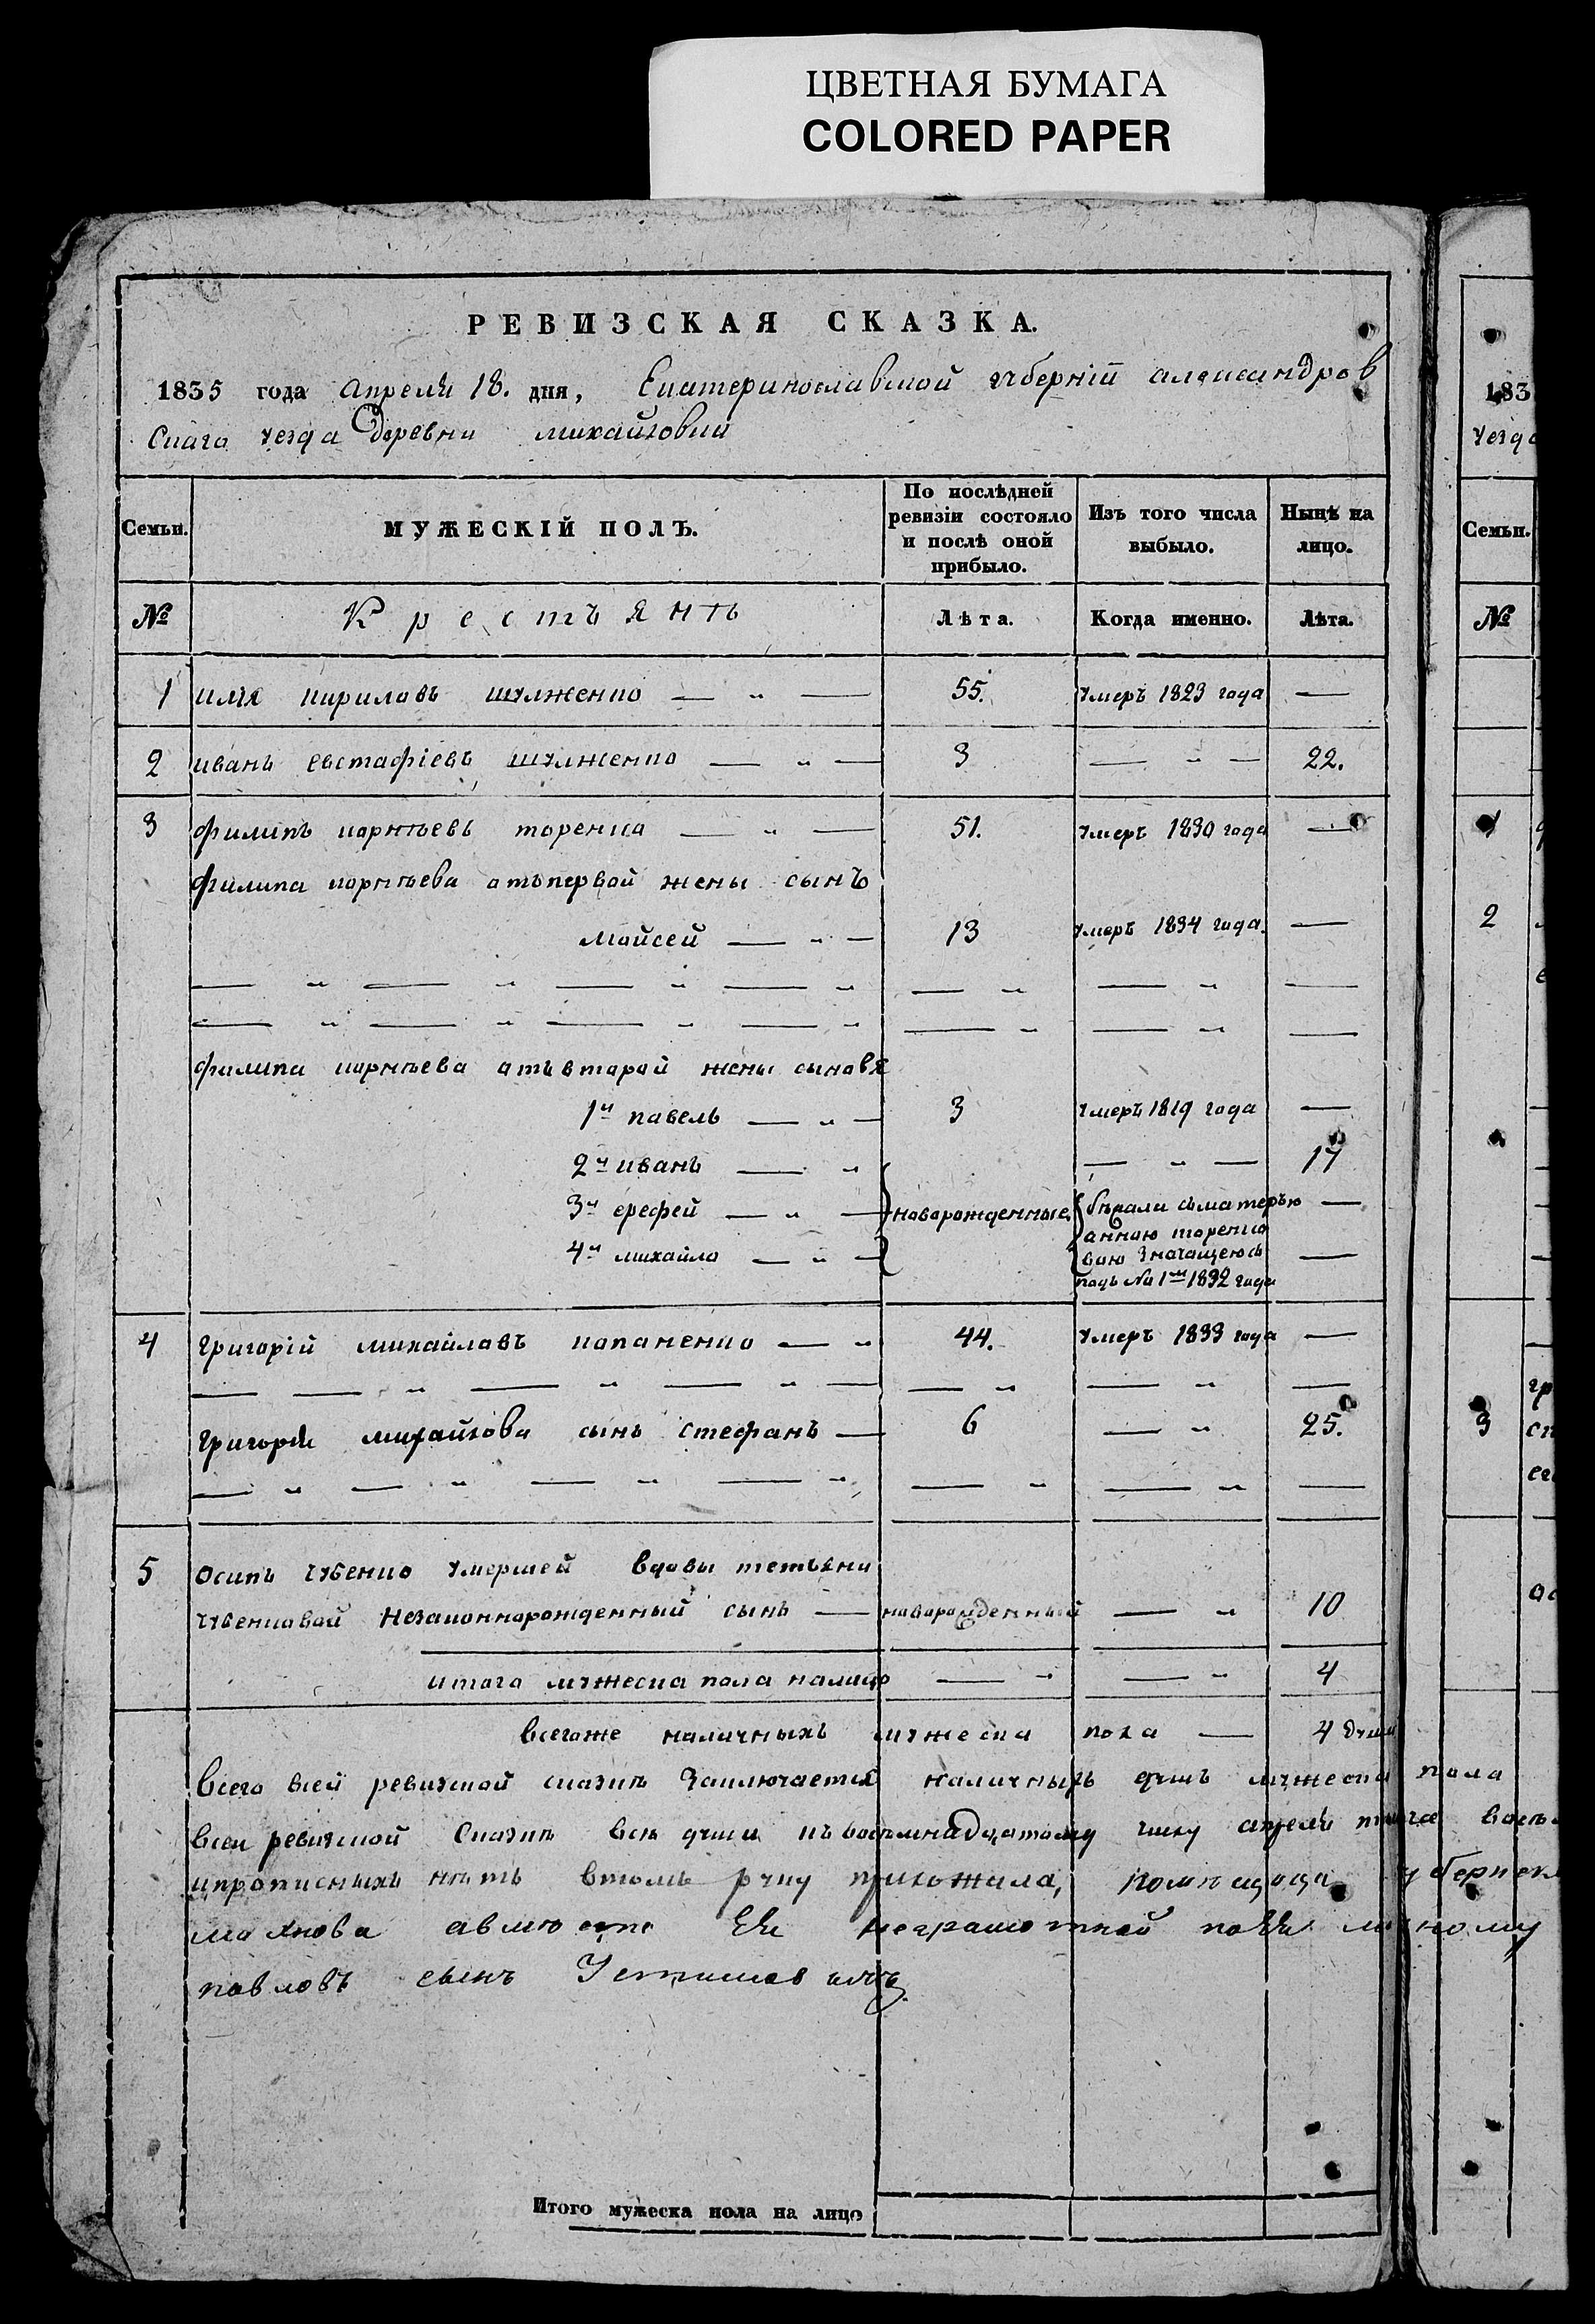 ЦВЕТНАЯ БУМАГА
COLORED PAPER
РЕВИЗСКАЯ СКАЗКА.
1835 года апреля 18. дня, Екатеринославской губерніи александров
скаго уезда деревни михайловки
Семьи. МУЖЕСКІЙ ПОЛЪ. По послѣдней ревизіи состояло и послѣ оной прибыло. Изъ того числа выбыло. Нынѣ на лицо.
№ Крестьянъ Лѣта. Когда именно. Лѣта.
1 илия кириловъ шулженко — „ — 55. умеръ 1823 года —
2 иванъ евстафіевъ шулженко — „ — 3 — „ — 22.
3 филипъ корнѣевъ торенка — „ — 51. умеръ 1830 года —
филипа корнѣева отъпервой жены сынъ
мойсей — „ — 13 умеръ 1834 года. —
филипа корнѣева отъвтарой жены сыновя
1й павелъ — „ — 3 умеръ 1819 года —
2й иванъ — „ — „ — 17
3й ерофей — „ — новорожденные бѣжали съматерью —
анною торенко
4й михайло — „ — вою значащеюсь —
подъ № 1м 1832 года
4 григорій михайлавъ потаненко — „ 44. умеръ 1833 года —
григорія михайлова сынъ стефанъ — 6 — „ 25.
5 осипъ чубенко умершей вдовы тетьяни
чубенковой незаконнорожденный сынъ — новорожденный — „ 10
итого мужеска пола налицо — „ — „ 4
всегоже наличныхъ мужеска пола — 4 души
всего всей ревизской сказкѣ заключается наличныхъ душъ мужеска пола
всеи ревизской сказкѣ всѣ души къвосемнадцатому числу апреля
ипрописныхъ нѣтъ втомъ руку приложила, помѣщица губернск
неграмотной
павловъ сынъ
Итого мужеска пола на лицо
183
уезда
Семьи.
№
1
2
3